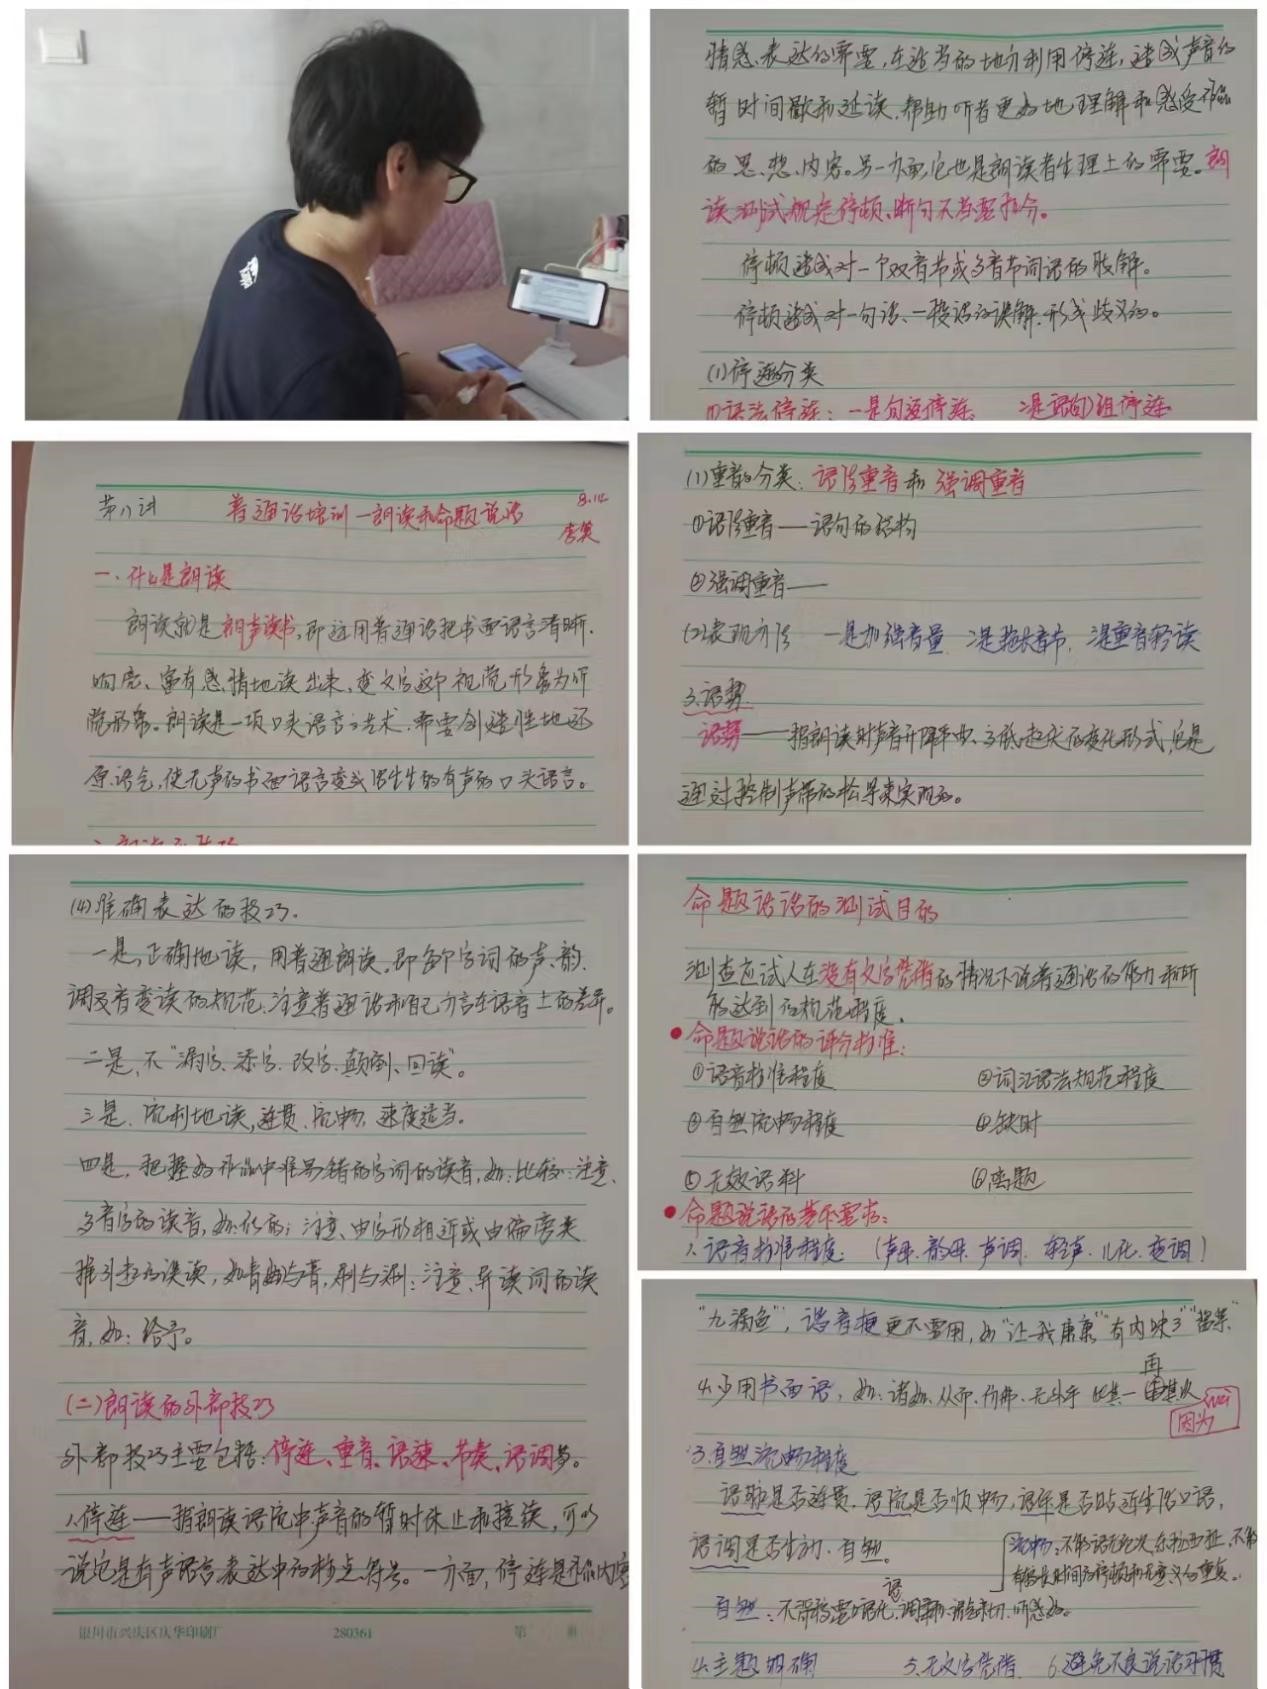 情感、表达的需要，在适当的地方利用停连，造成声音的
暂时间歇和延读，帮助听者更好地理解和感受作品
的思想、内容。另一方面，它也是朗读者生理上的需要。朗
读测试规定停顿、断句不当要扣分。
停顿造成对一个双音节或多音节词语的肢解。
停顿造成对一句话、一段话的误解，形成歧义的。
(1)停连分类
①语法停连：一是句逗停连、 二是词(句)组停连
第八讲 普通话培训—朗读和命题说话 8.14
李英
一、什么是朗读
朗读就是朗声读书，即运用普通话把书面语言清晰、
响亮、富有感情地读出来，变文字这个视觉形象为听
觉形象。朗读是一项口头语言的艺术，需要创造性地还
原语气，使无声的书面语言变成活生生的有声的口头语言。
(1)重音的分类：语法重音和强调重音
①语法重音——语句的结构
②强调重音——
(2)表现方法 一是加强音量 二是拖长音节，三是重音轻读
3.语势
语势——指朗读时声音升降平曲、高低起伏的变化形式，它是
通过控制声带的松紧来实现的。
(4)准确表达的技巧.
一是，正确地读，用普通朗读，即每个字词的声、韵、
调及音变读的规范，注意普通话和自己方言在语音上的差异。
二是，不“漏字、添字、改字、颠倒、回读”。
三是，流利地读，连贯、流畅、速度适当。
四是，把握好作品中难易错的字词的读音，如：比较；注意
多音字的读音，如：似的；注意，由字形相近或由偏旁类
推引起的误读，如
注意，异读词的读
音，如：给予。
(二)朗读的外部技巧
外部技巧主要包括：停连、重音、语速、节奏、语调等。
1.停连——指朗读语流中声音的暂时休止和接续，可以
说它是有声语言表达中的标点符号。一方面，停连是作品内容
银川市兴庆区庆华印刷厂 280361 第 册
命题说话的测试目的
测查应试人在没有文字凭借的情况下说普通话的能力和所
能达到的规范程度。
●命题说话的评分标准：
①语音标准程度 ②词汇语法规范程度
③自然流畅程度 ④缺时
⑤无效语料 ⑥离题
●命题说话的基本要求：
1.语音标准程度：(声母、韵母、声调、轻声、儿化、变调)
“九漏鱼”，谐音梗更不要用，如“让我康康”“有内味了”
再
4.少用书面语，如：诸如、从而、仿佛、无外乎 其一 其次
因为
3.自然流畅程度
语脉是否连贯，语流是否顺畅，语体是否贴近生活口语，
语调是否生动、自然。
流畅：不能语无伦次、东拉西扯，不能
有较长时间的停顿和无意义的重复。
自然：
4.主题明确 5.无文字凭借 6.避免不良说话习惯